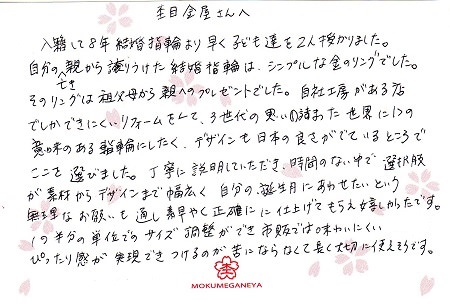 杢目金屋さんへ
入籍して8年 結婚指輪より早く子ども達を2人授かりました。
自分の亡き親から譲りうけた結婚指輪は、シンプルな金のリングでした。
そのリングは祖父母から親へのプレゼントでした。自社工房がある店
でしかできにくいリフォームをして、3世代の思いの詰まった世界に1つの
意味のある指輪にしたく、デザインも日本の良さがでているところで
ここを選びました。丁寧に説明していただき、時間のない中で選択肢
が素材からデザインまで幅広く 自分の誕生月にあわせたいという
無理なお願いも通し素早く正確に仕上げてもらえ嬉しかったです。
1つ半分の単位でのサイズ調整ができ市販では味わいにくい
ぴったり感が実現できつけるのが苦にならなくて長く大切に使えそうです。
MOKUMEGANEYA